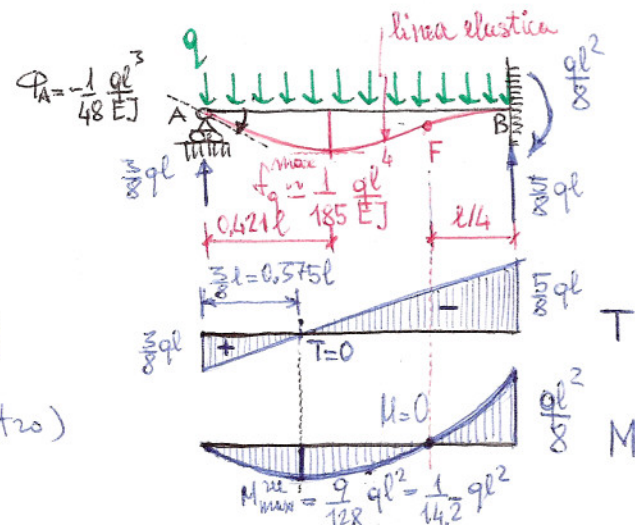 linea elastica
q
φA = -1/48 ql³/EJ
A
B
ql²/8
F
3/8 ql
f q max ≃ 1/185 ql⁴/EJ
5/8 ql
0,421 l
l/4
3/8 l = 0,375 l
5/8 ql
3/8 ql
+
-
T=0
T
M=0
ql²/8
M
M max = 9/128 ql² = 1/14,2 ql²